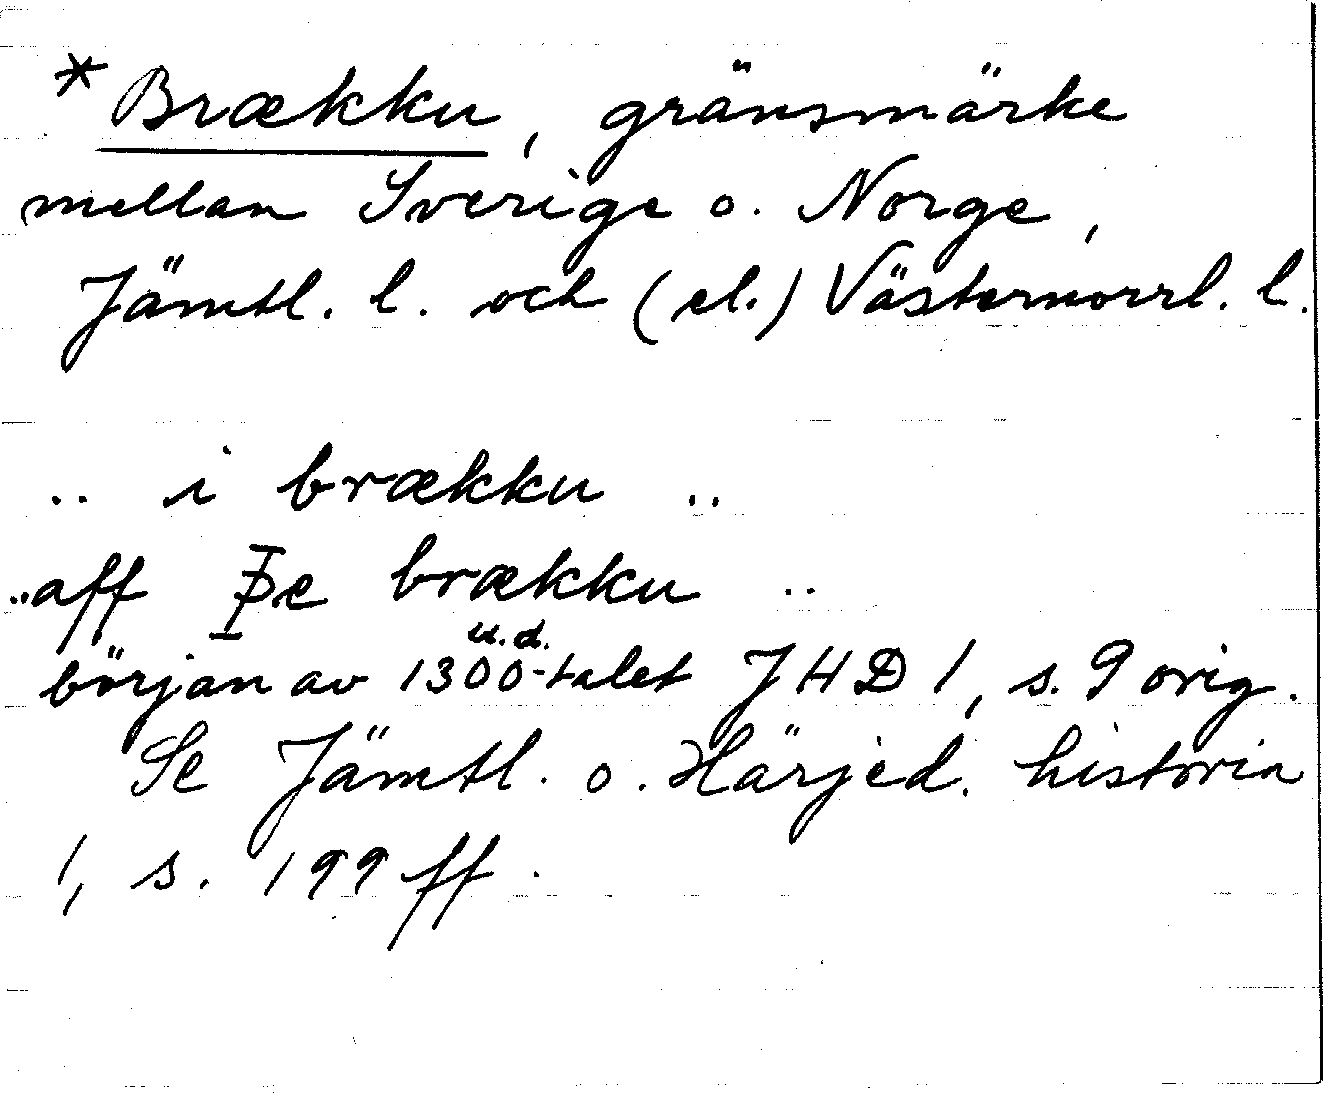 *Brækku, gränsmärke
mellan Sverige o. Norge,
Jämtl. l. och (el.) Västernorrl. l.
.. i brækku ..
..aff Þe brækku ..
u.d.
början av 1300-talet JHD 1, s. 9 orig.
Se Jämtl. o. Härjed. historia
1, s. 199 ff.